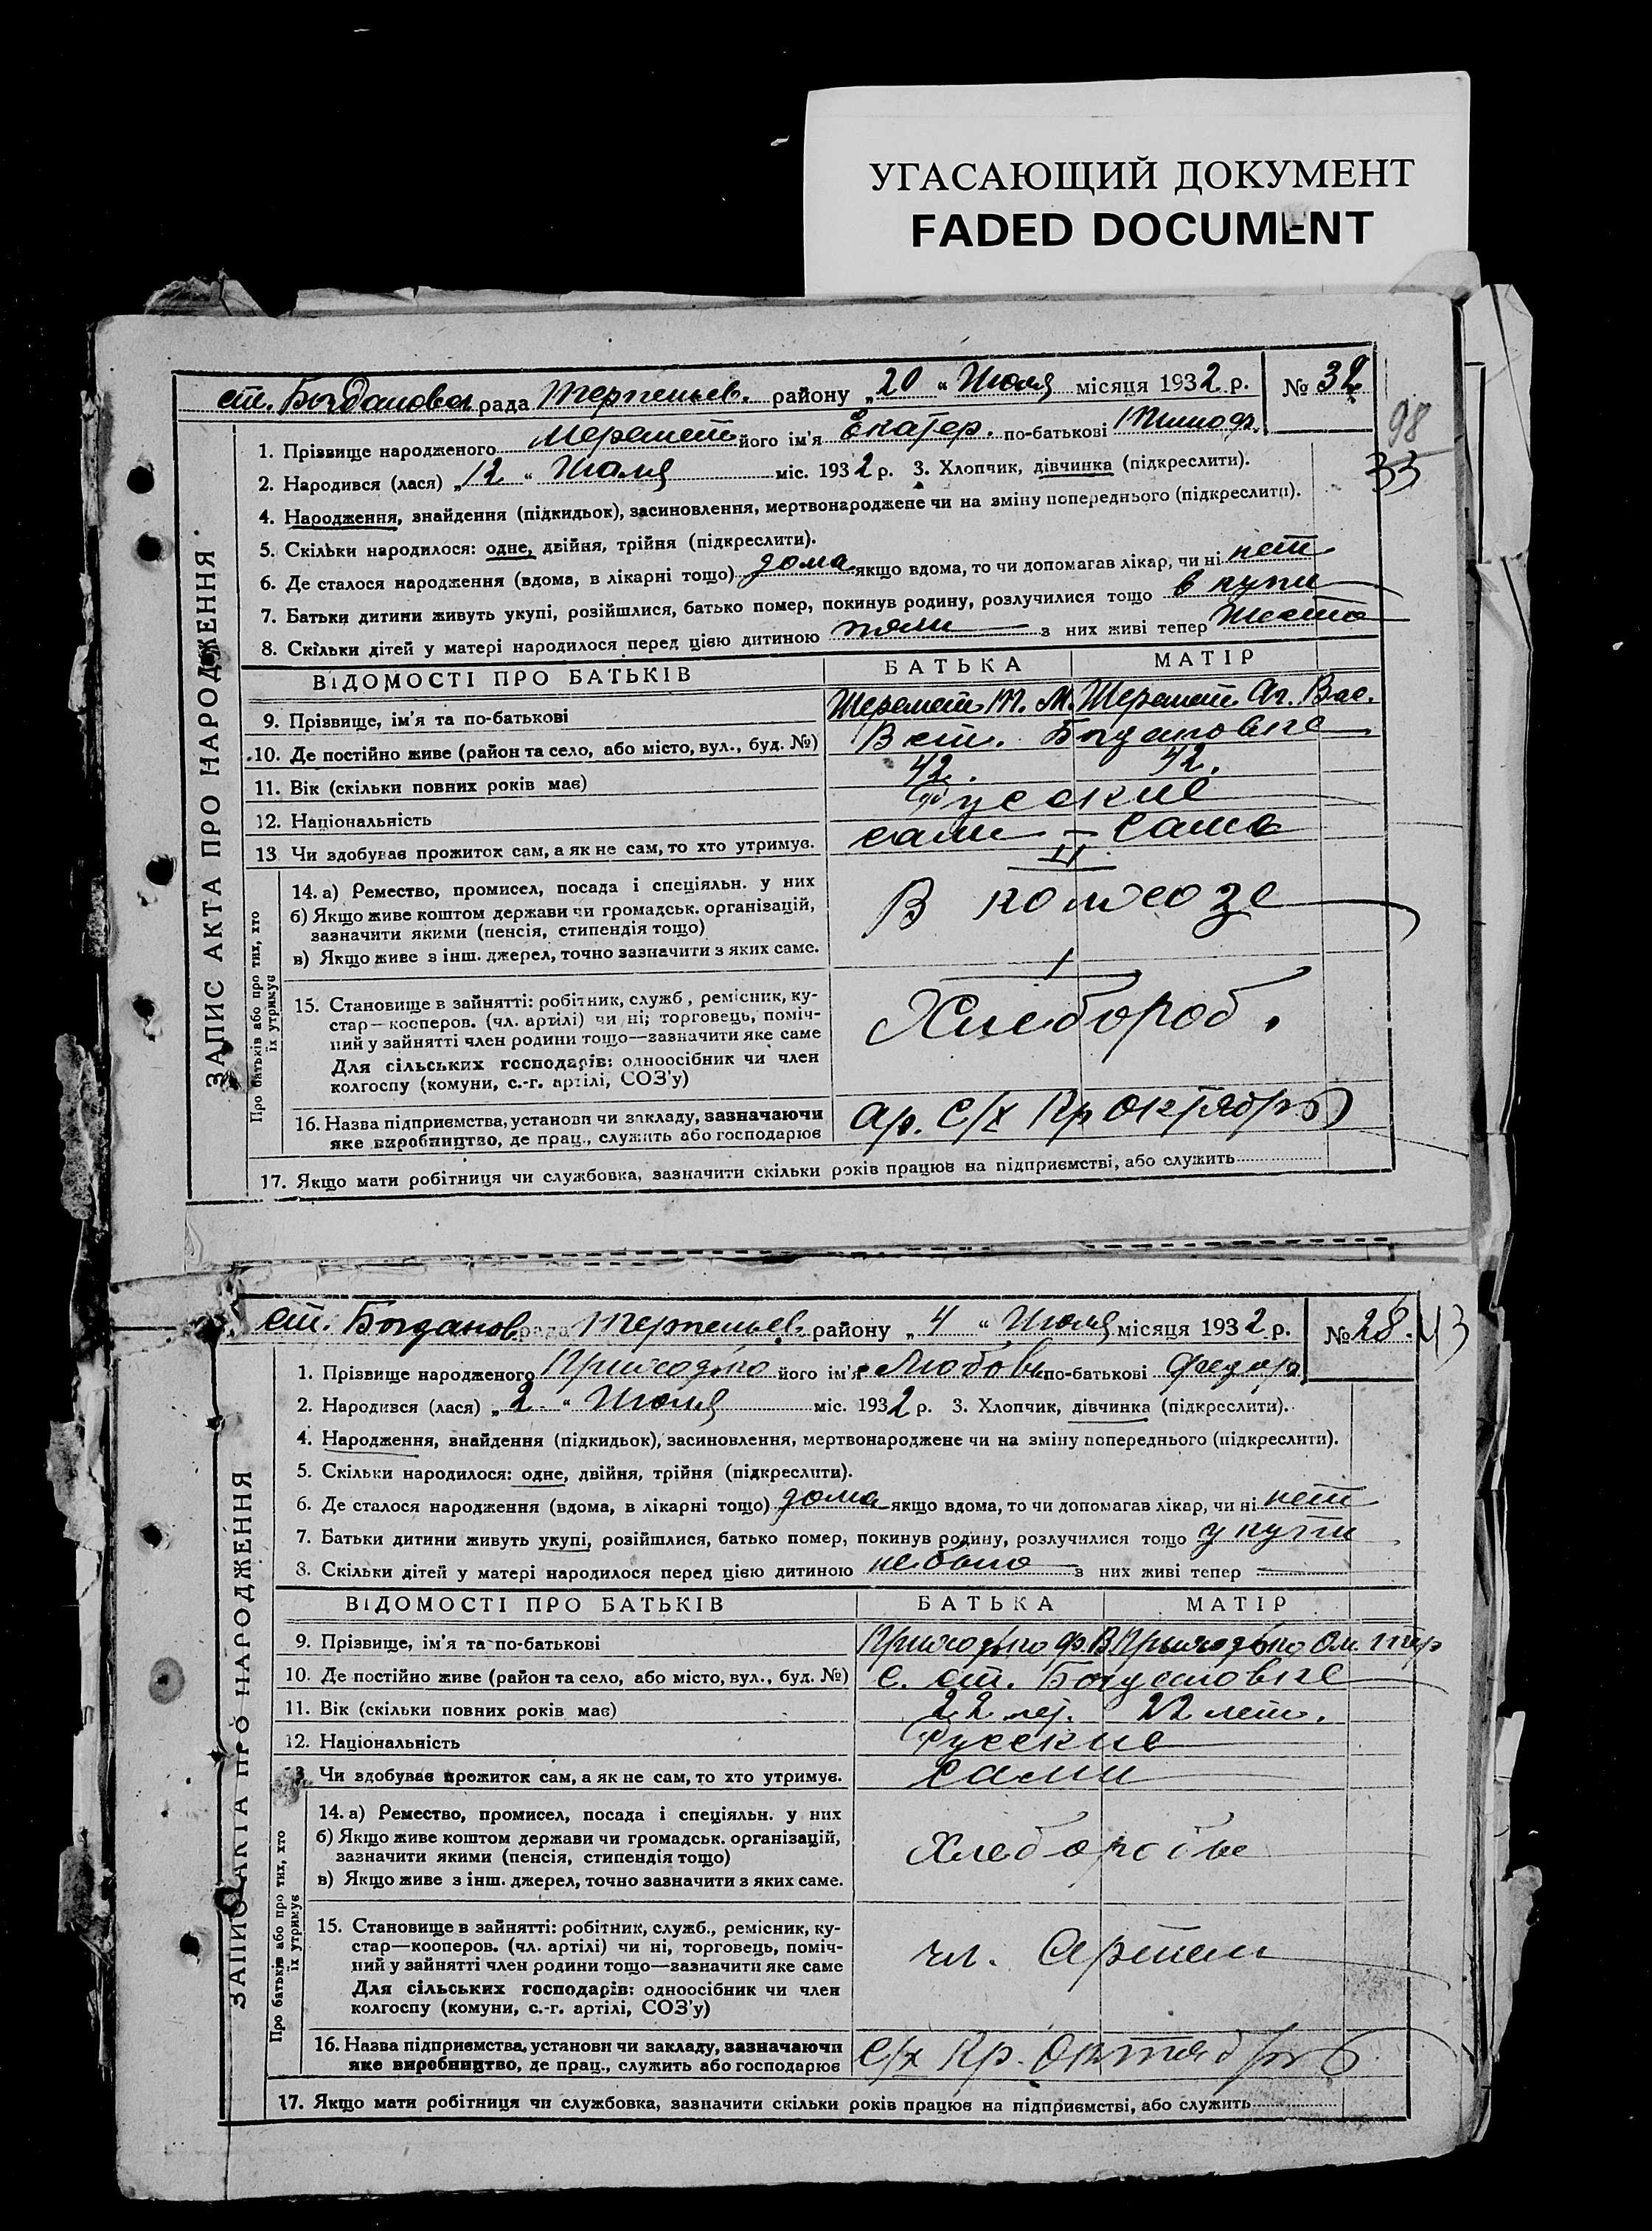 УГАСАЮЩИЙ ДОКУМЕНТ
FADED DOCUMENT
ст. Богдановск рада Терпеньев. району „20“ Июля місяця 1932 р. № 32
98
33
ЗАПИС АКТА ПРО НАРОДЖЕННЯ
1. Прізвище народженого Шеремет його ім'я Екатер. по-батькові Тимоф.
2. Народився (лася) „12“ Июля міс. 1932 р. 3. Хлопчик, дівчинка (підкреслити).
4. Народження, знайдення (підкидьок), засиновлення, мертвонароджене чи на зміну попереднього (підкреслити).
5. Скільки народилося: одне, двійня, трійня (підкреслити).
6. Де сталося народження (вдома, в лікарні тощо) дома якщо вдома, то чи допомагав лікар, чи ні нет
7. Батьки дитини живуть укупі, розійшлися, батько помер, покинув родину, розлучилися тощо в купи
8. Скільки дітей у матері народилося перед цією дитиною з них живі тепер
ВІДОМОСТІ ПРО БАТЬКІВ БАТЬКА МАТІР
9. Прізвище, ім'я та по-батькові Шеремет Т. М. Шеремет Аг. Вас.
10. Де постійно живе (район та село, або місто, вул., буд. №) В ст. Богдановке
11. Вік (скільки повних років має) 42. 42.
12. Національність Русские
13 Чи здобував прожиток сам, а як не сам, то хто утримує. сами — сама
Про батьків або про тих, хто їх утримує
14. а) Ремество, промисел, посада і спеціяльн. у них
б) Якщо живе коштом держави чи громадськ. організацій,
зазначити якими (пенсія, стипендія тощо)
в) Якщо живе з інш. джерел, точно зазначити з яких саме.
В колхозе
15. Становище в зайнятті: робітник, служб, ремісник, ку-
стар—косперов. (чл. артілі) чи ні; торговець, поміч-
ний у зайнятті член родини тощо—зазначити яке саме
Для сільських господарів: одноосібник чи член
колгоспу (комуни, с.-г. артілі, СОЗ'у)
Хлебороб.
16. Назва підприємства, установи чи закладу, зазначаючи
яке виробництво, де прац., служить або господарює
ар. С/х Кр Октябрь
17. Якщо мати робітниця чи службовка, зазначити скільки років працює на підприємстві, або служить
ст. Богданов рада Терпеньев району „4“ Июля місяця 1932 р. № 28. 43
ЗАПИС АКТА ПРО НАРОДЖЕННЯ
1. Прізвище народженого Приходько його ім'я Любовь по-батькові Федор
2. Народився (лася) „2“ Июля міс. 1932 р. 3. Хлопчик, дівчинка (підкреслити).
4. Народження, знайдення (підкидьок), засиновлення, мертвонароджене чи на зміну попереднього (підкреслити).
5. Скільки народилося: одне, двійня, трійня (підкреслити).
6. Де сталося народження (вдома, в лікарні тощо) дома якщо вдома, то чи допомагав лікар, чи ні нет
7. Батьки дитини живуть укупі, розійшлися, батько помер, покинув родину, розлучилися тощо у купи
8. Скільки дітей у матері народилося перед цією дитиною не было з них живі тепер —
ВІДОМОСТІ ПРО БАТЬКІВ БАТЬКА МАТІР
9. Прізвище, ім'я та по-батькові Приходько Ф. В Приходько Ол.
10. Де постійно живе (район та село, або місто, вул., буд. №) с. ст. Богдановке
11. Вік (скільки повних років має) 22 лет. 22 лет.
12. Національність Русские
13 Чи здобував прожиток сам, а як не сам, то хто утримує. сами
Про батьків або про тих, хто їх утримує
14. а) Ремество, промисел, посада і спеціяльн. у них
б) Якщо живе коштом держави чи громадськ. організацій,
зазначити якими (пенсія, стипендія тощо)
в) Якщо живе з інш. джерел, точно зазначити з яких саме.
Хлеборобы
15. Становище в зайнятті: робітник, служб., ремісник, ку-
стар—кооперов. (чл. артілі) чи ні, торговець, поміч-
ний у зайнятті член родини тощо—зазначити яке саме
Для сільських господарів: одноосібник чи член
колгоспу (комуни, с.-г. артілі, СОЗ'у)
чл. Артели
16. Назва підприємства, установи чи закладу, зазначаючи
яке виробництво, де прац., служить або господарює
С/х Кр. Октябрь
17. Якщо мати робітниця чи службовка, зазначити скільки років працює на підприємстві, або служить